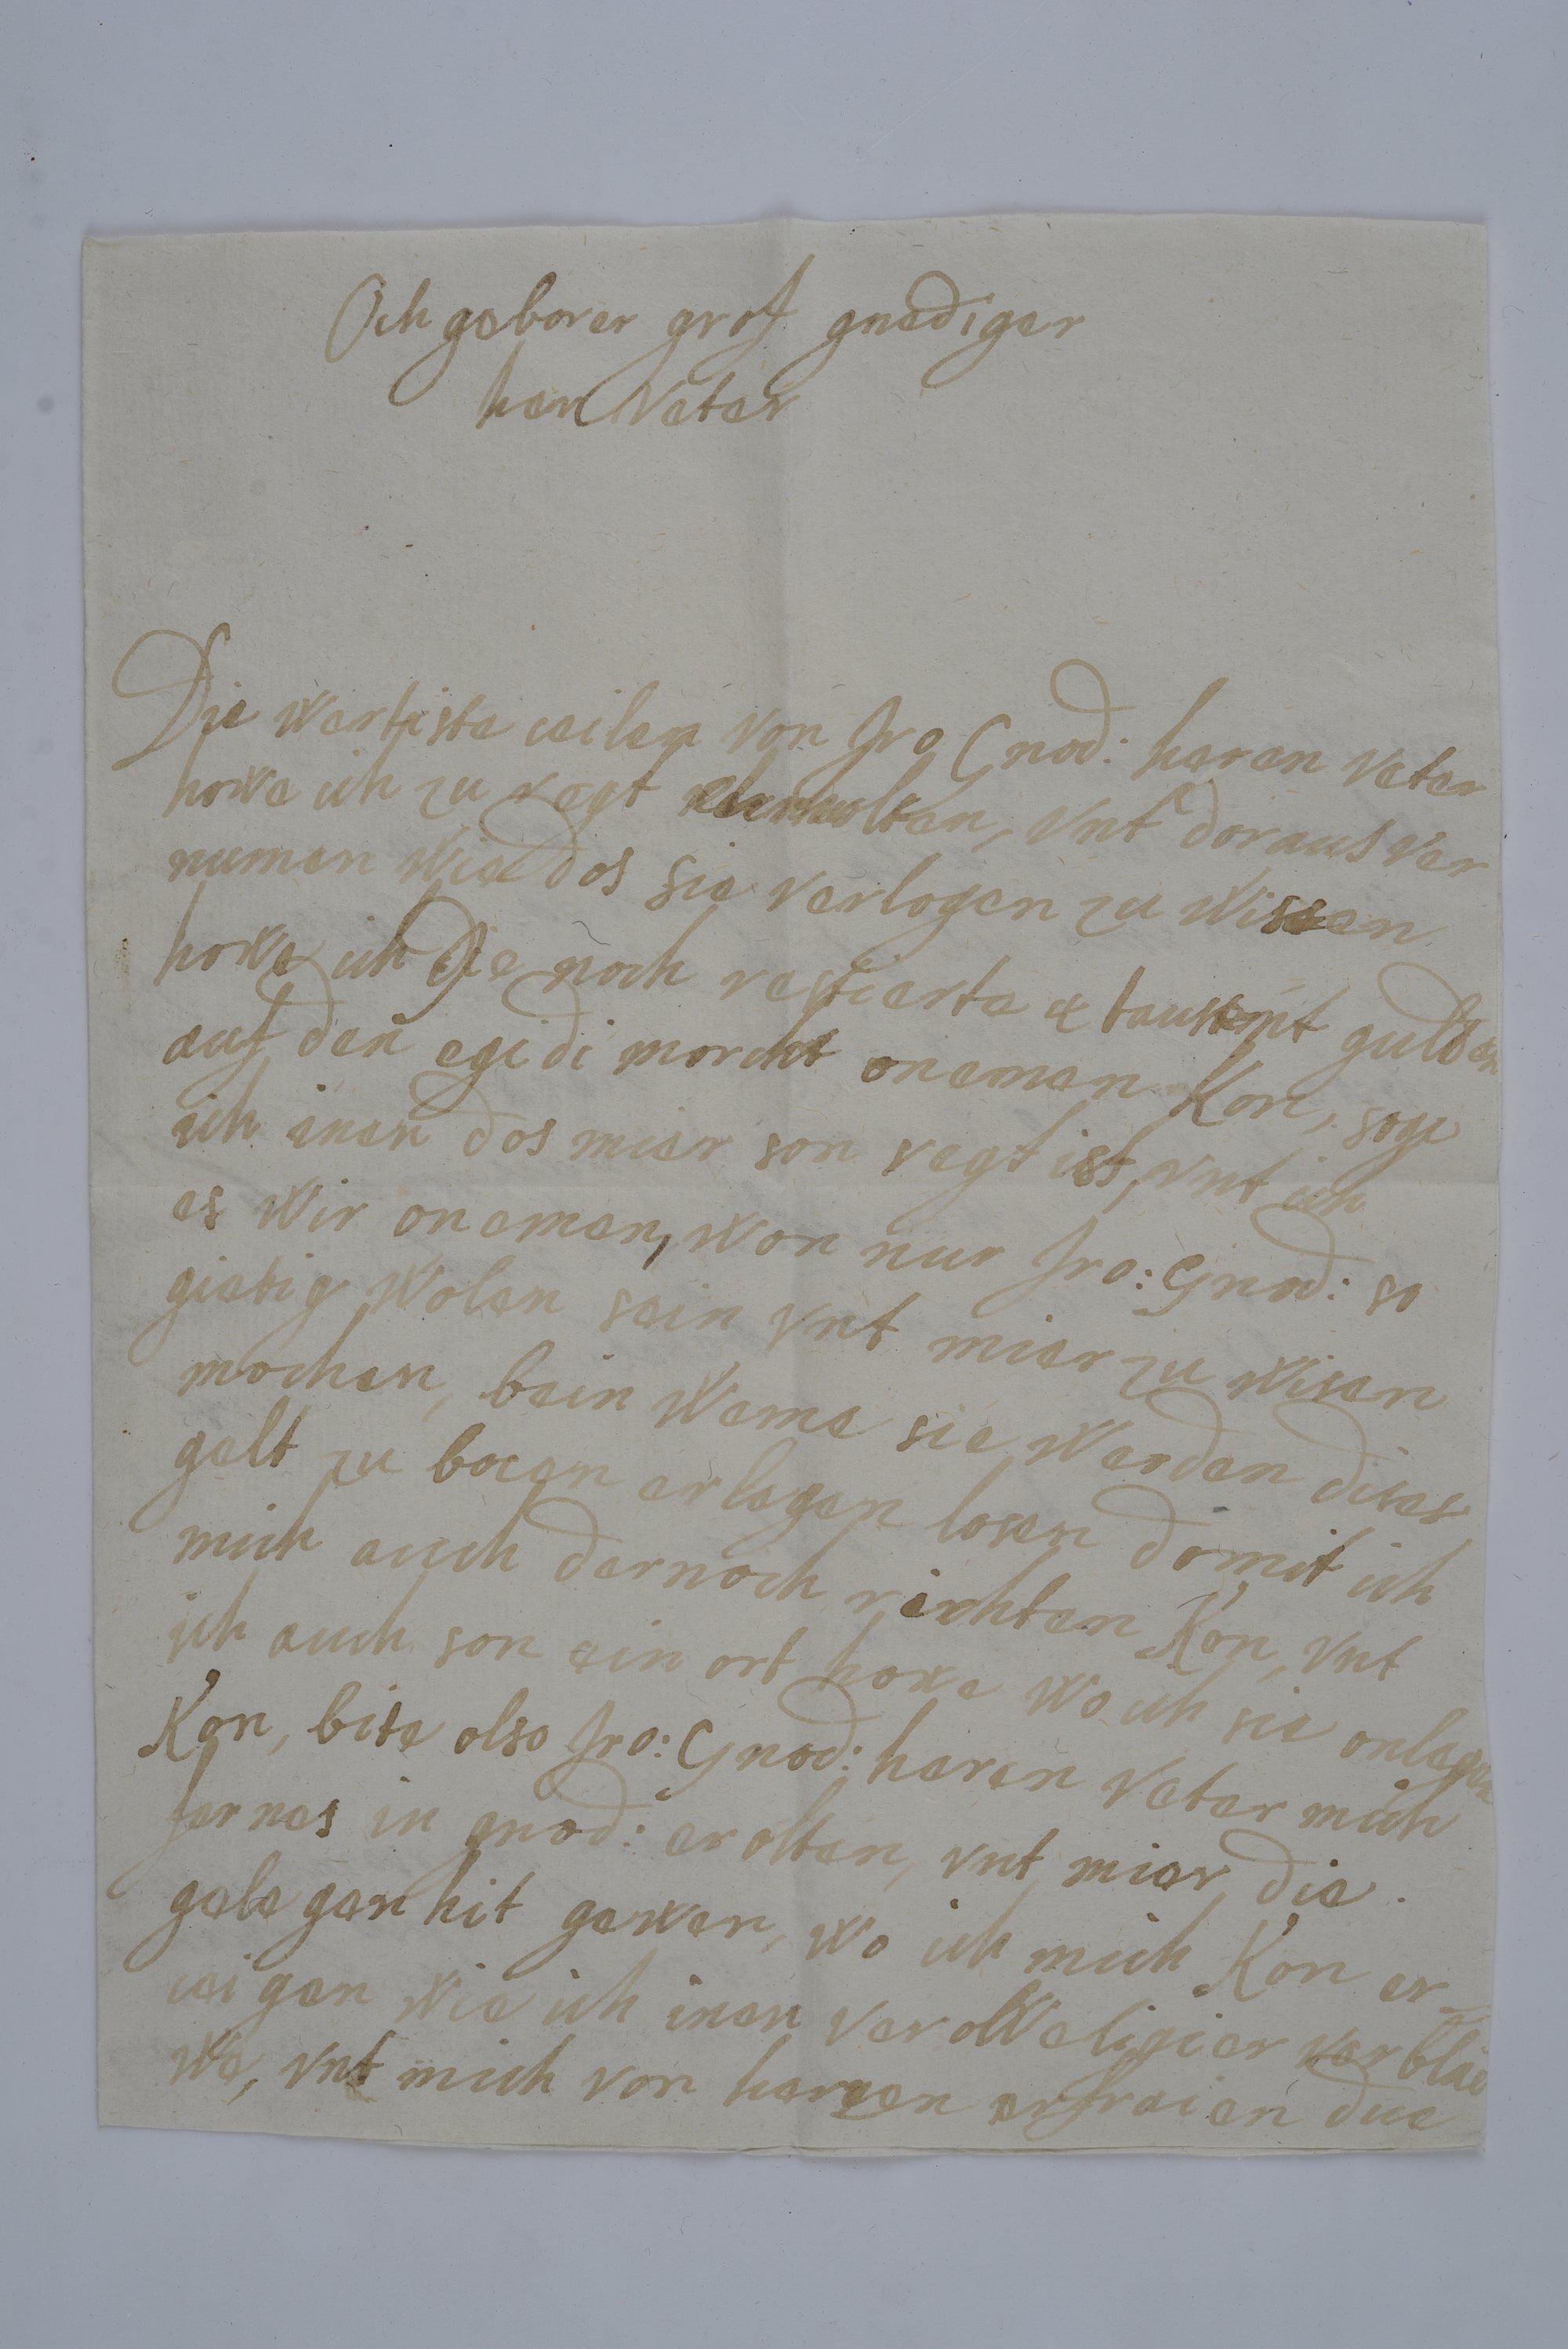 Och geborer grof gnediger
her Veter
Die wertiste ceilen von Iro Gnod: heren veter
howe ich zu regt erholten, vnt doraus ver
numen wie dos sie verlogen zu wissen
howe ich die noch restierte 4 tausent gulden
auf den egidi morckt onemen kon, soge
ich inen dos mier son regt ist, vnt ich
es wir onemen, won nur Iro: Gnod: so
gietig wolen sein vnt mier zu wisen
mochen, bein weme sie werden dises
gelt zu bocen erlegen losen domit ich
mich auch dernoch richten kon, vnt
ich auch son ein ort howe wo ich sie onlegen
kon, bite olso Iro: Gnod: heren veter mich
fernes in gnod: erolten, vnt mier die
gelegenhit gewen, wo ich mich kon er-
ceigen wie ich inen ver olweligier verblei
we, vnt mich von hercen erfreien due